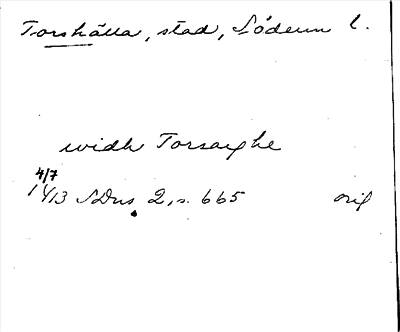 Torshälla, stad, Söderm l.
widh Torsarghe
4/7
1413 SDns 2, s. 665 orig